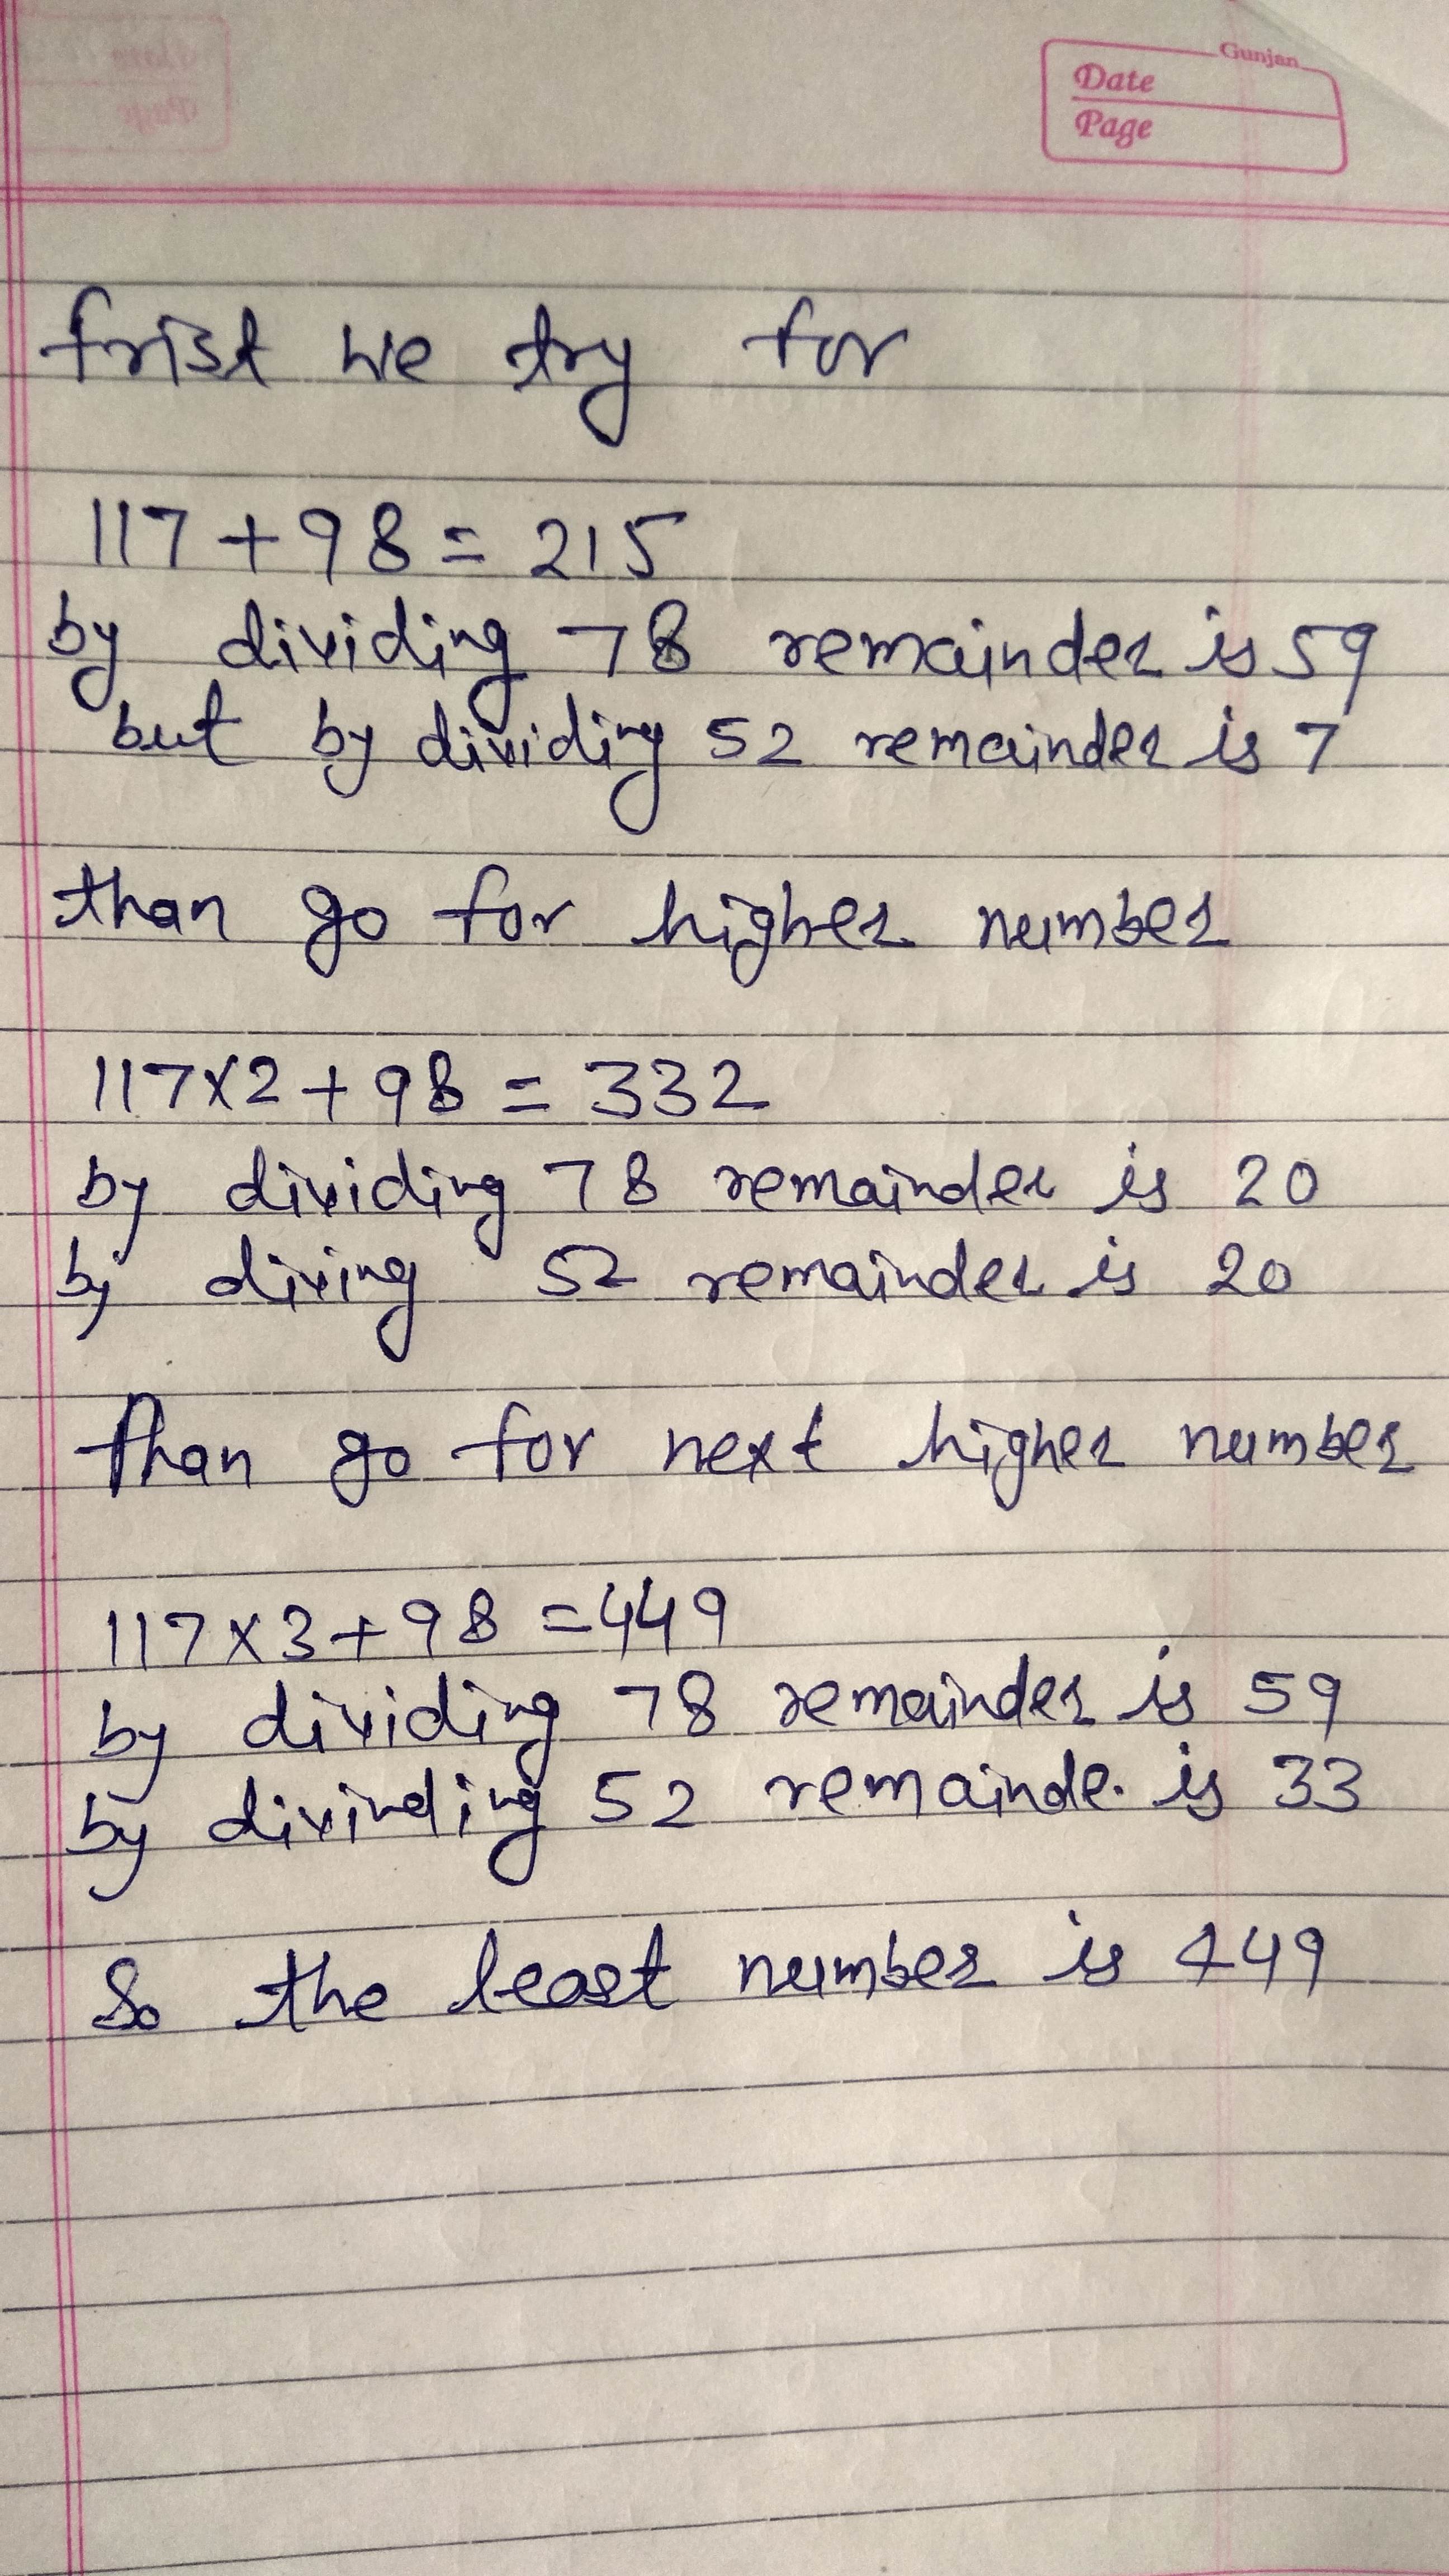 Gunjan
Date
Page
frist we try for
117+98=215
by dividing 78 remainder is 59
but by dividing 52 remainder is 7
than go for higher number
117x2+98=332
by dividing 78 remainder is 20
by diving 52 remainder is 20
than go for next higher number
117x3+98=449
by dividing 78 remainder is 59
by divinding 52 remainde. is 33
So the least number is 449